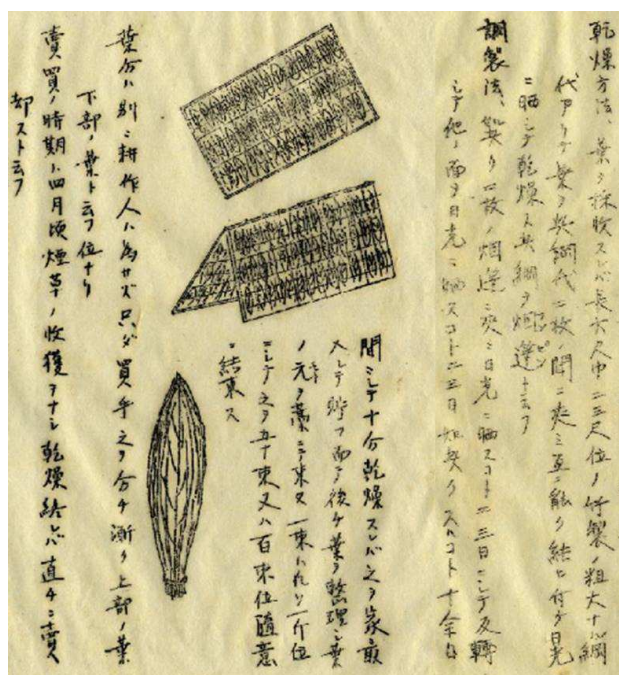 乾燥方法、葉ヲ採収スレバ長六尺巾二三尺位ノ竹製ノ粗大ナル網
代アリテ葉ヲ其網代二枚ノ間ニ夾ミ互ニ能ク結ヒ付ケ日光
ニ晒シテ乾燥ス其網ヲ烟蓬ト云フ
調製法、如斯ク二枚ノ烟蓬ニ夾ミ日光ニ晒スコト二三日ニシテ反轉
シテ他ノ面ヲ日光ニ晒スコト二三日如斯クスルコト十余日
間ニシテ十分乾燥スレバ之ヲ家
ヘシテ貯フ而シテ後ケ葉ヲ整理シ葉
ノ元ヲ藁ニテ束ヌ一束ハ凡ソ一斤位
ニシテ之ヲ五十束又ハ百束位随意
ニ結束ス
葉分ハ別ニ耕作人ハ為サズ只ダ買手之ヲ分チ漸ク上部ノ葉
下部ノ葉ト云フ位ナリ
賣買ノ時期ハ四月頃煙草ノ收獲ヲナシ乾燥終レバ直チニ賣
却スト云フ